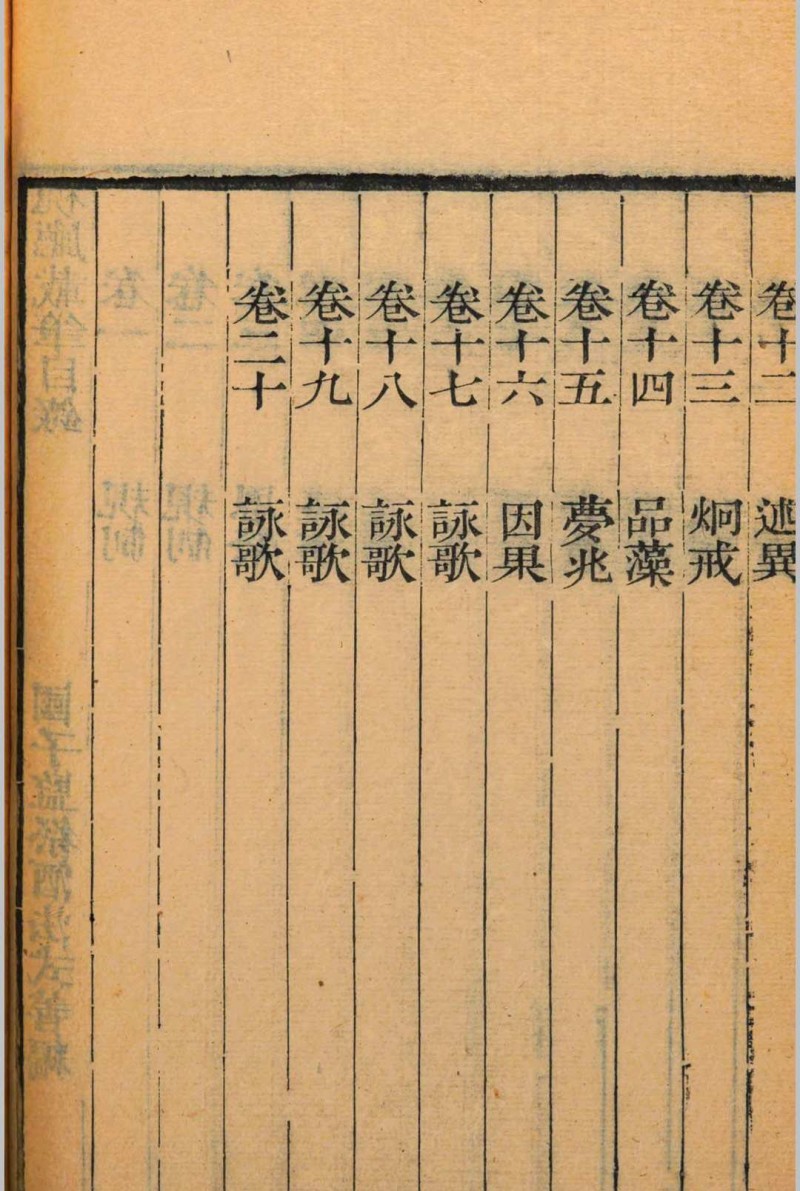 卷十二 述異
卷十三 炯戒
卷十四 品藻
卷十五 夢兆
卷十六 因果
卷十七 詠歌
卷十八 詠歌
卷十九 詠歌
卷二十 詠歌